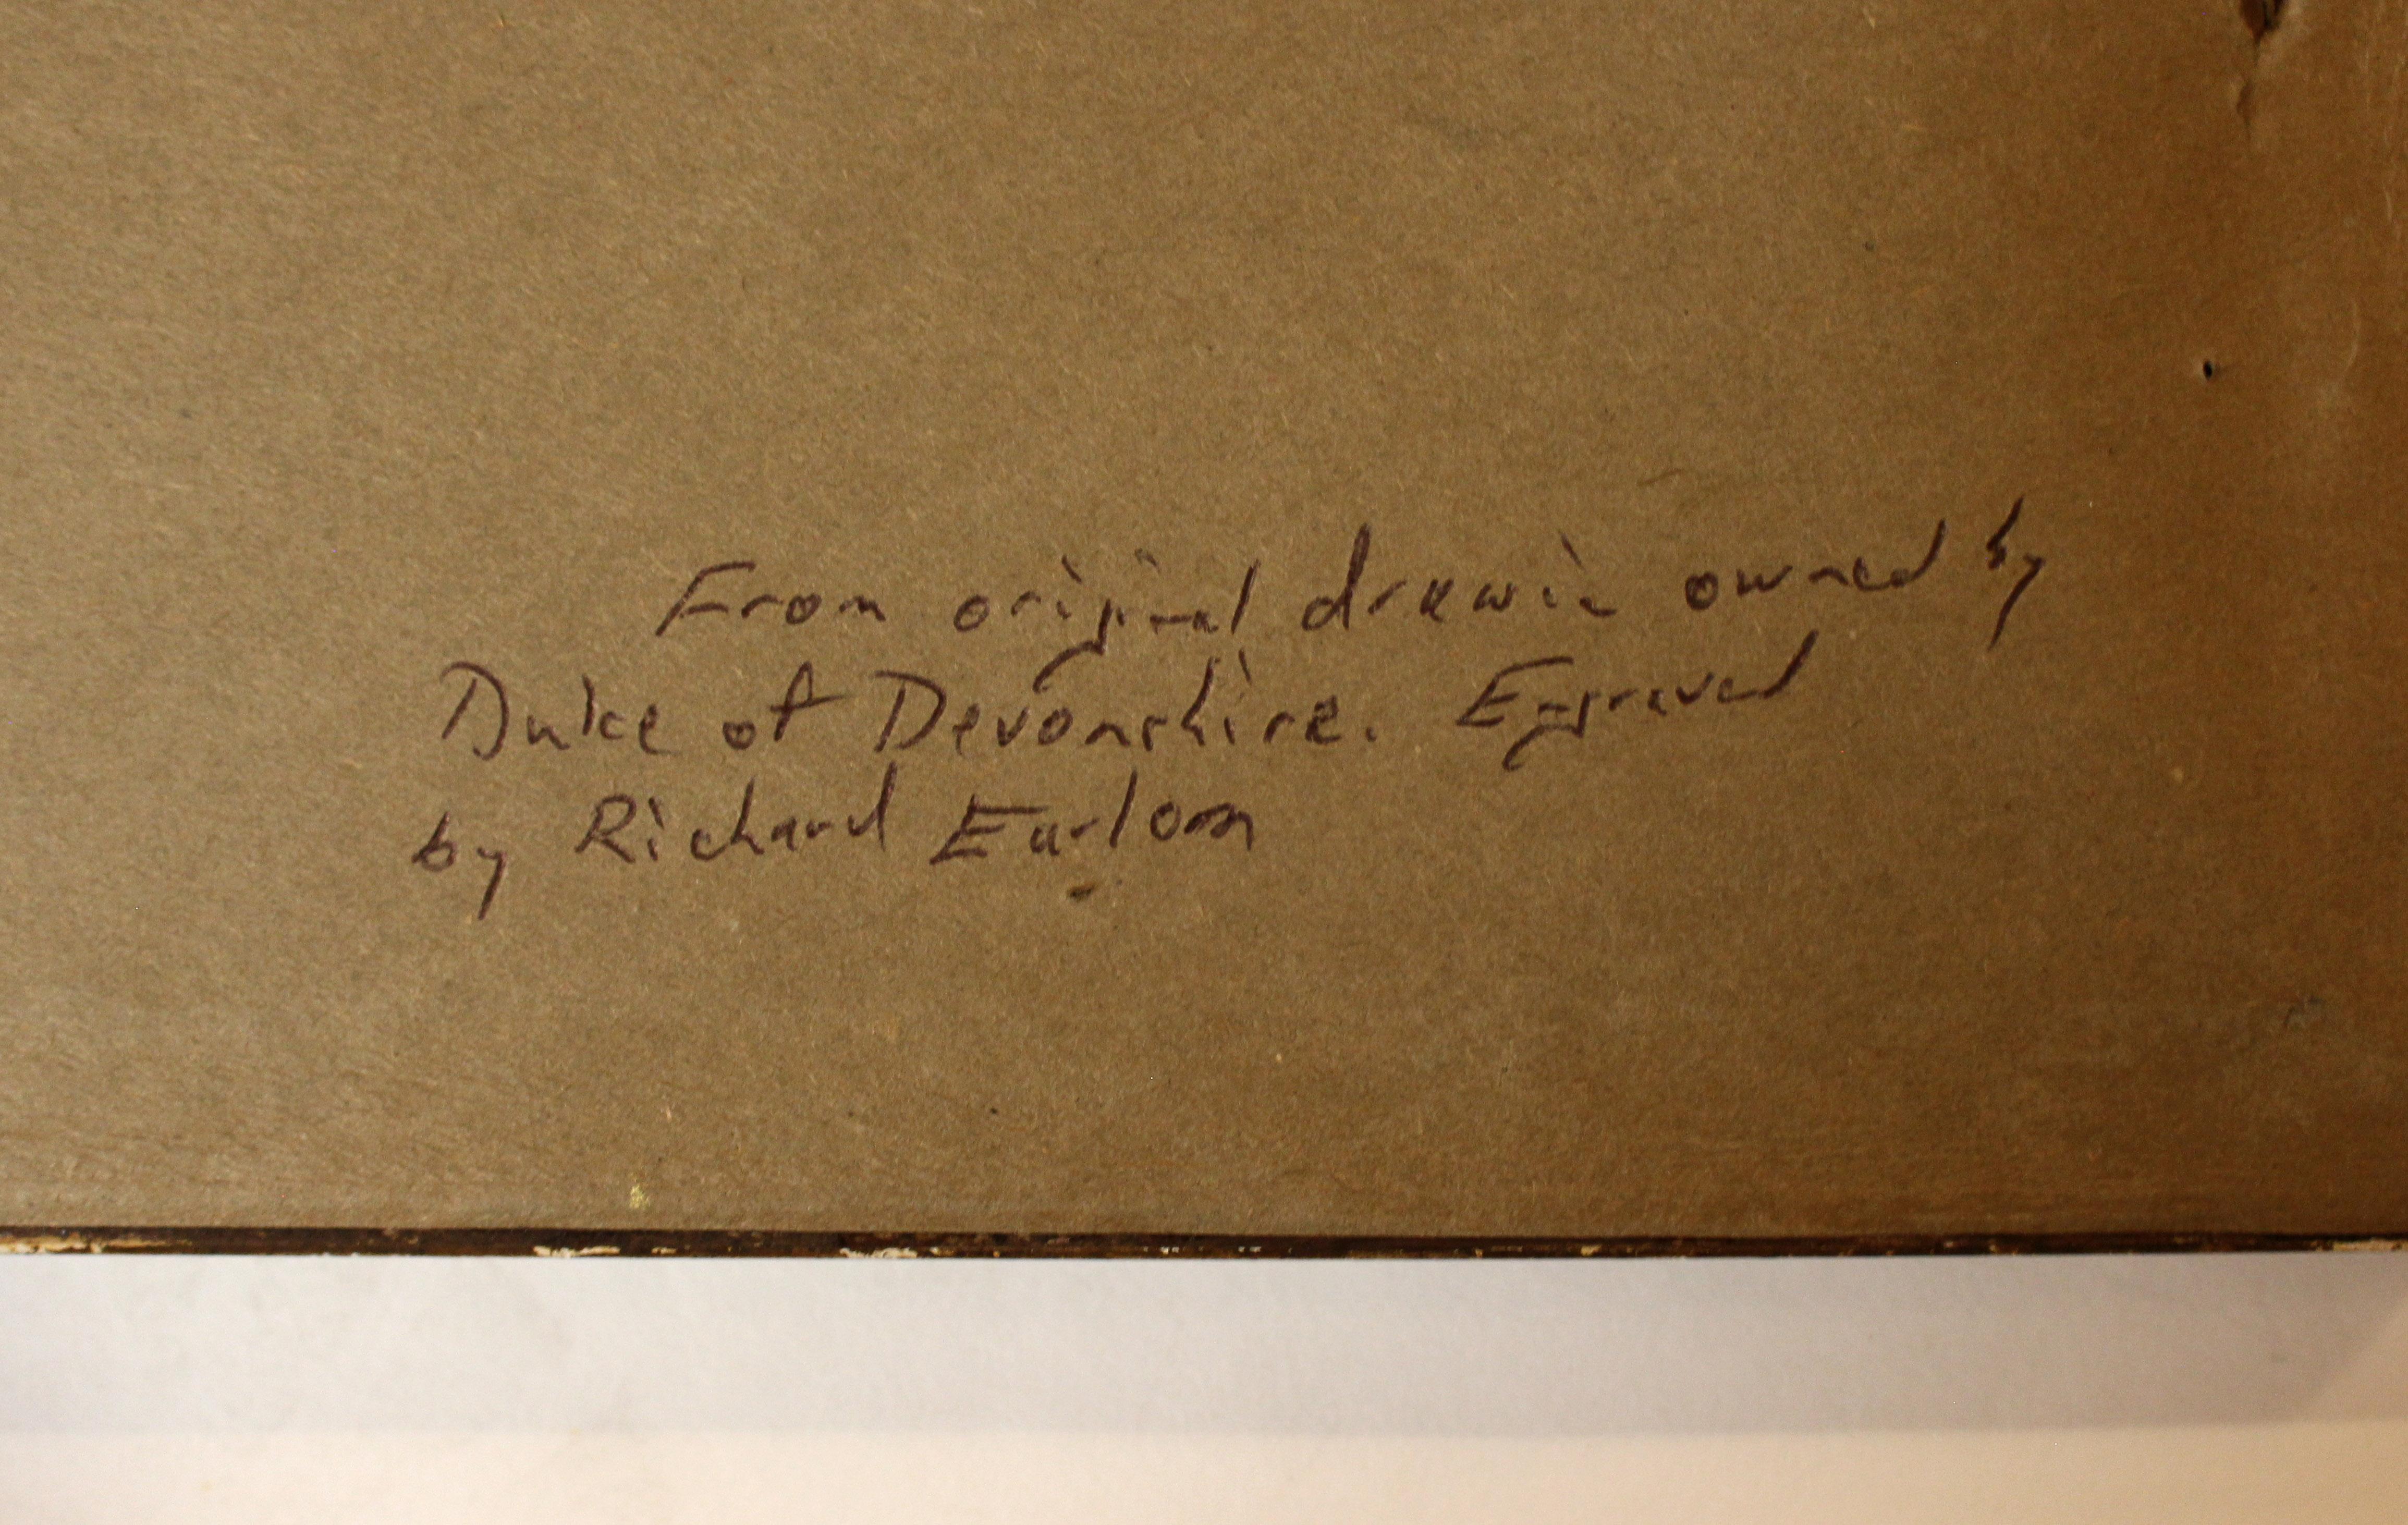 From original drawin owned by
Duke of Devonshire. Engraved
by Richard Earlom